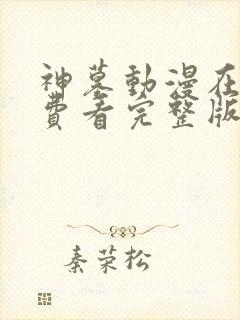 神墓動漫在
費看完整版
秦荣松